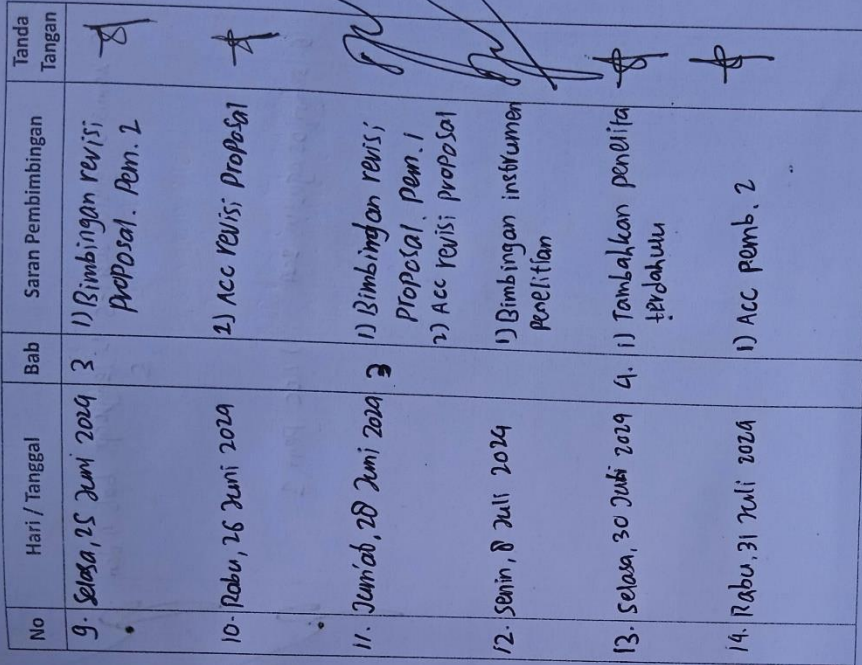 No Hari / Tanggal Bab Saran Pembimbingan Tanda Tangan
9. Selasa, 25 Juni 2024 3 1) Bimbingan revisi
Proposal. Pem. 2
10. Rabu, 26 Juni 2024 2) Acc revisi Proposal
11. Jum'at, 28 Juni 2024 3 1) Bimbingan revisi
Proposal. Pem. 1
2) Acc revisi proposal
12. Senin, 8 Juli 2024 1) Bimbingan instrumen
Penelitian
13. Selasa, 30 Juli 2024 4. 1) Tambahkan penelitia
terdahulu
14. Rabu, 31 Juli 2024 1) Acc Pemb. 2